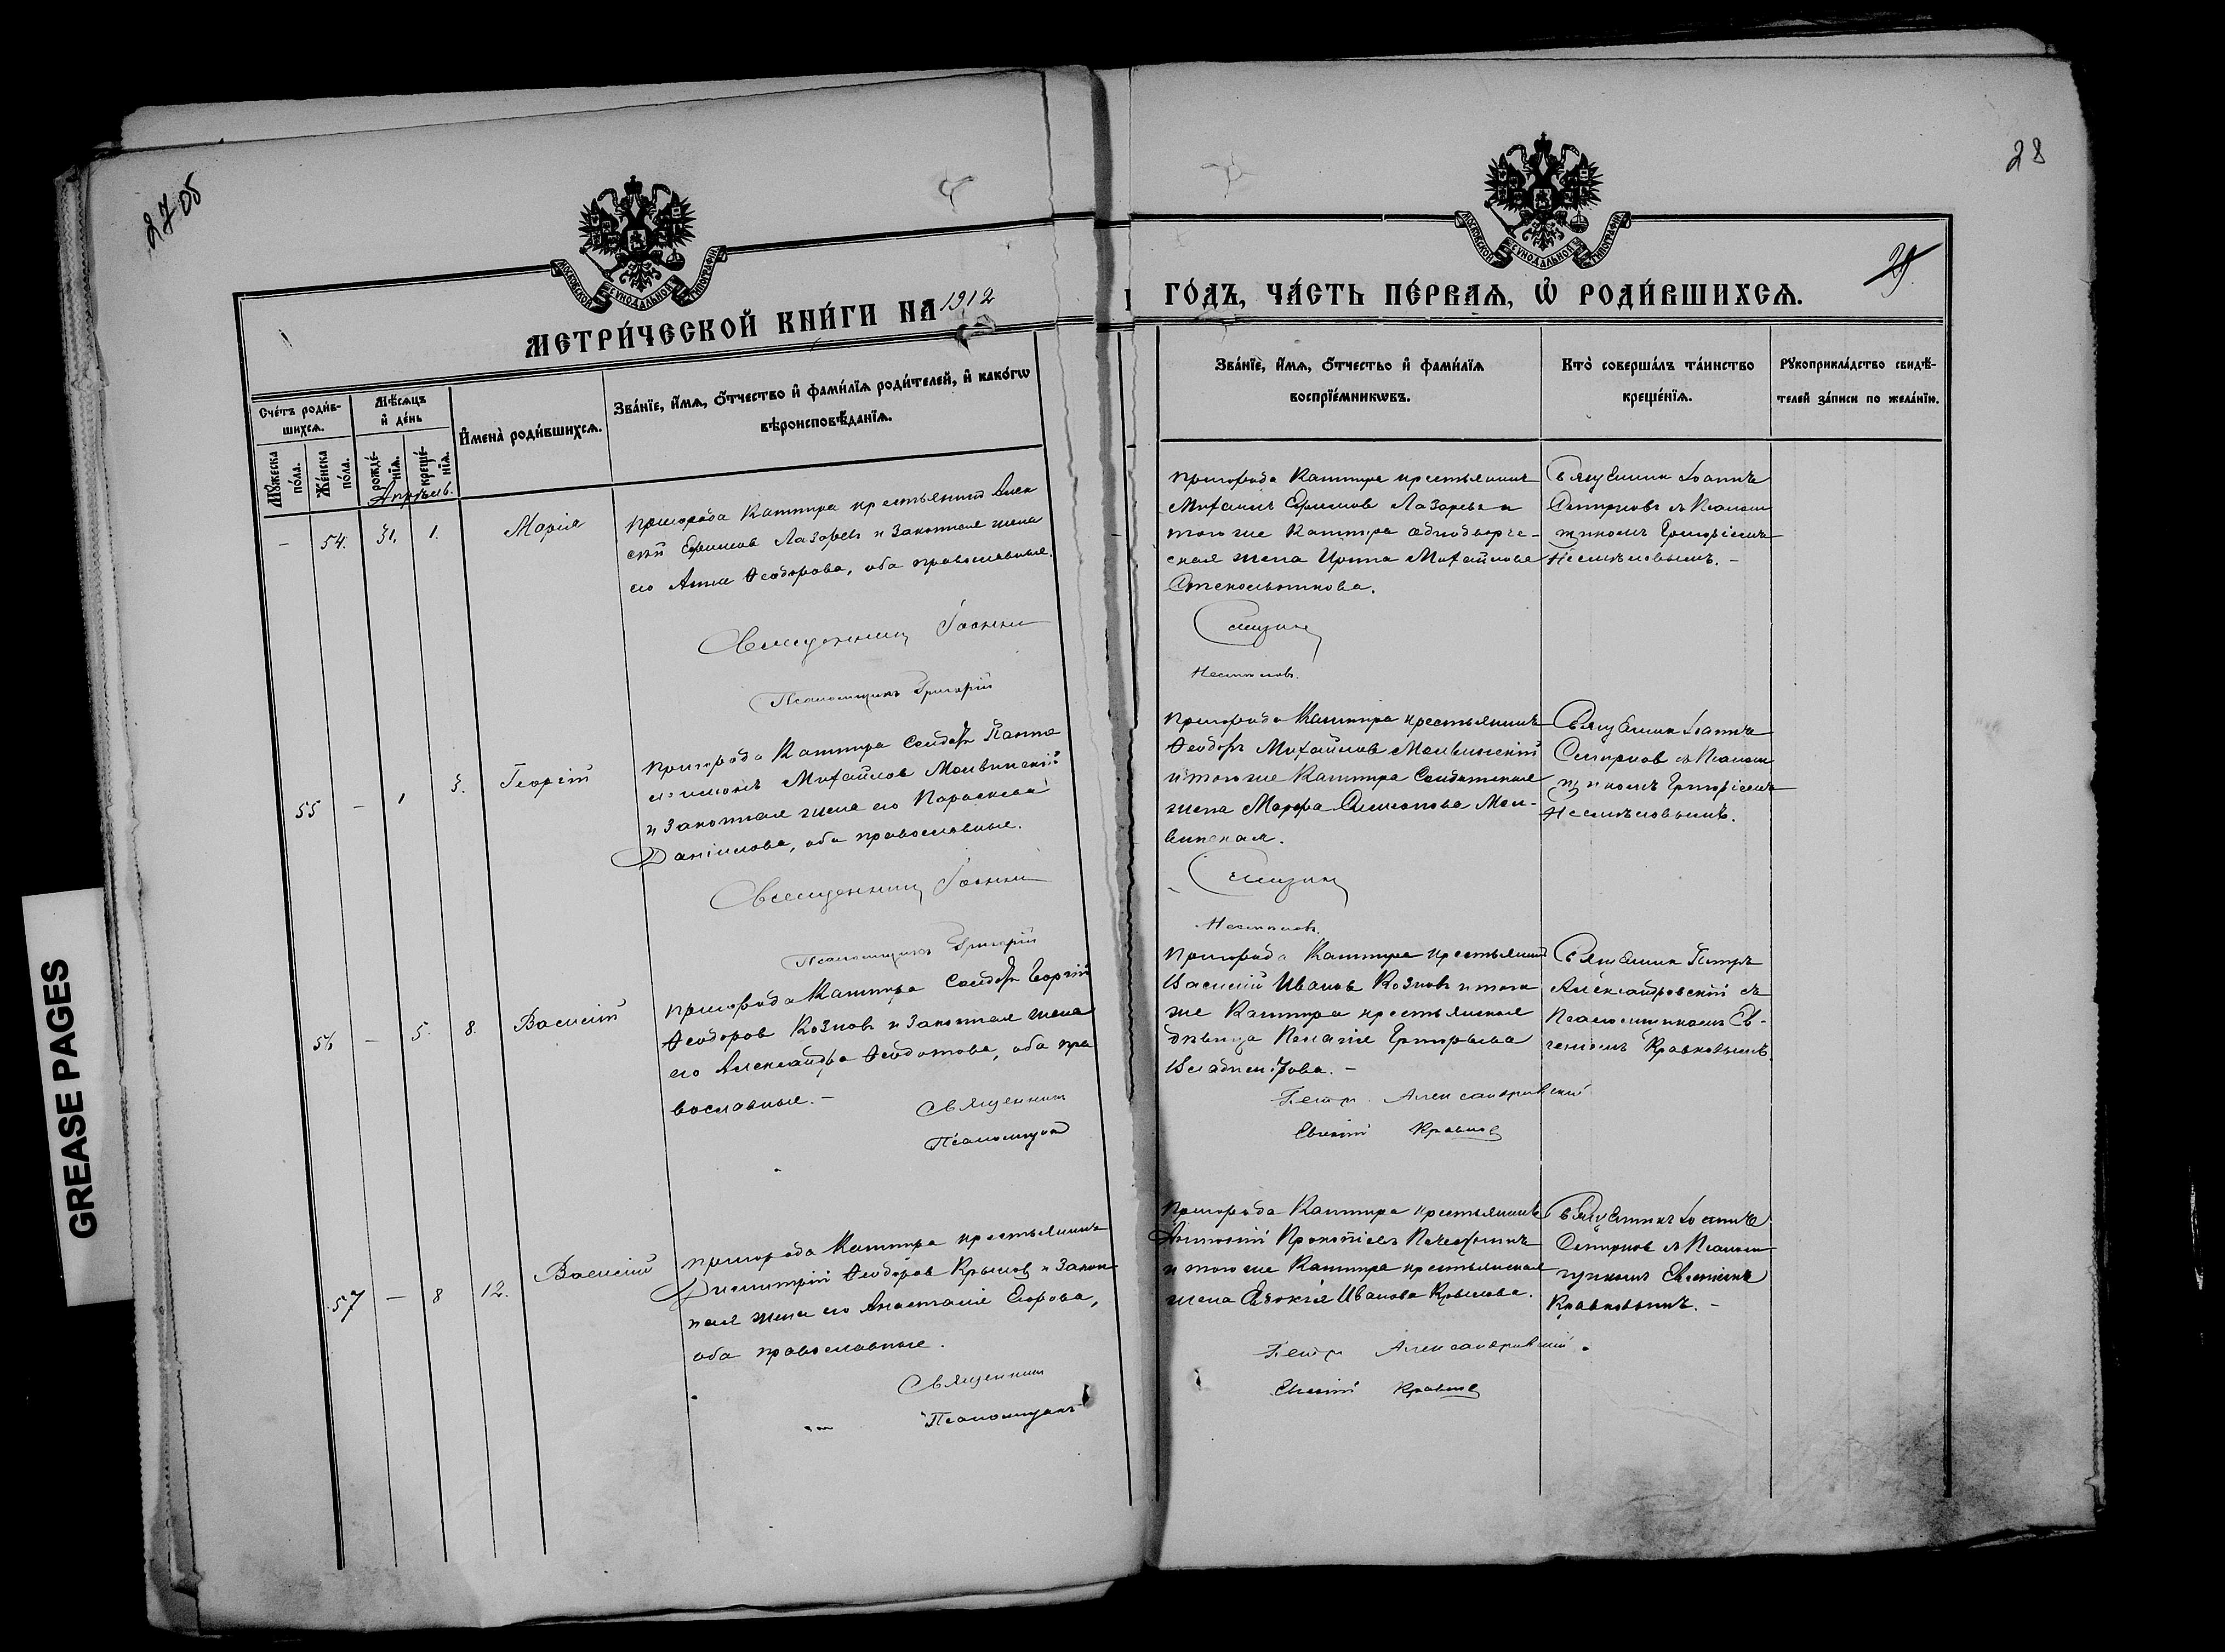 27 об
28
29.
МОСКОВСКОЙ СѴНОДАЛЬНОЙ ТИПОГРАФІИ
МОСКОВСКОЙ СѴНОДАЛЬНОЙ ТИПОГРАФІИ
МЕТРИ́ЧЕСКОЙ КНИ́ГИ НА 1912
ГО́ДЪ, ЧА́СТЬ ПЕ́РВАѦ, Ѿ РОДИ́ВШИХСѦ.
Сче́тъ роди́в-
шихсѧ.
Мꙋ́жеска по́ла.
Же́нска по́ла.
Мѣ́сѧцъ
и҆ де́нь
рожде́-нїѧ.
креще́-нїѧ.
И҆мена̀ роди́вшихсѧ.
Зва́нїе, и҆́мѧ, ѻ҆́тчество и҆ фами́лїѧ роди́телей, и҆ како́гѡ
вѣроисповѣ́данїѧ.
Зва́нїе, и҆́мѧ, ѻ҆́тчество и҆ фами́лїѧ
воспрїе́мникѡвъ.
Кто̀ соверша́лъ та́инство
креще́нїѧ.
Рꙋкоприкла́дство свидѣ́-
телей за́писи по жела́нїю.
Апрѣль.
– 54. 31. 1. Марія
пригорода Каттира крестьянинъ Алек
сѣй Ефимов Лазарев и законная жена
его Анна Ѳеодорова, оба православные.
Священник Іоанн
Псаломщикъ Григорій
пригорода Каттира крестьянинъ
Михаилъ Ефимов Лазарев и
того же Каттира однодворче-
ская жена Ирина Михайлова
Стекольникова.
Смирн
Священник Іоаннъ
Смирновъ съ Псалом
щикомъ Григоріемъ
55 – 1 3. Георгій
пригорода Каттира Солдатъ
Михайлов
и законная жена его Параскева
Даніилова, оба православные.
Священник Іоанн
Псаломщикъ Григорій
пригорода Каттира крестьянинъ
Ѳеодоръ Михайлов
и того же Каттира Солдатская
жена Марфа Симонова
Смирн
Священник Іоаннъ
Смирнов съ Псалом
щикомъ Григоріемъ
56 – 5. 8. Василій
пригорода Каттира Солдатъ Георгій
Ѳеодоров Кознов и законная жена
его Александра Ѳеодотова, оба пра
вославные. –
Священник
Псаломщик
пригорода Каттира крестьянинъ
Василій Иванов Кознов и того
же Каттира крестьянская
дѣвица Пелагія Григорьева
Владимірова. –
Петръ Александровскій
Евгеній Кравков
Священник Петръ
Александровскій съ
Псаломщикомъ Ев-
геніемъ Кравковымъ.
57 – 8 12. Василій
пригорода Каттира крестьянинъ
Димитрій Ѳеодоров Крылов и закон
ная жена его Анастасія Егорова,
оба православные.
Священник
Псаломщикъ
пригорода Каттира крестьянинъ
Прокопіевъ
и того же Каттира крестьянская
жена Евдокія Иванова Крылова.
Петръ Александровскій.
Евгеній Кравков
Священникъ Іоаннъ
Смирнов съ Псалом
щикомъ Евгеніемъ
Кравковымъ. –
GREASE PAGES